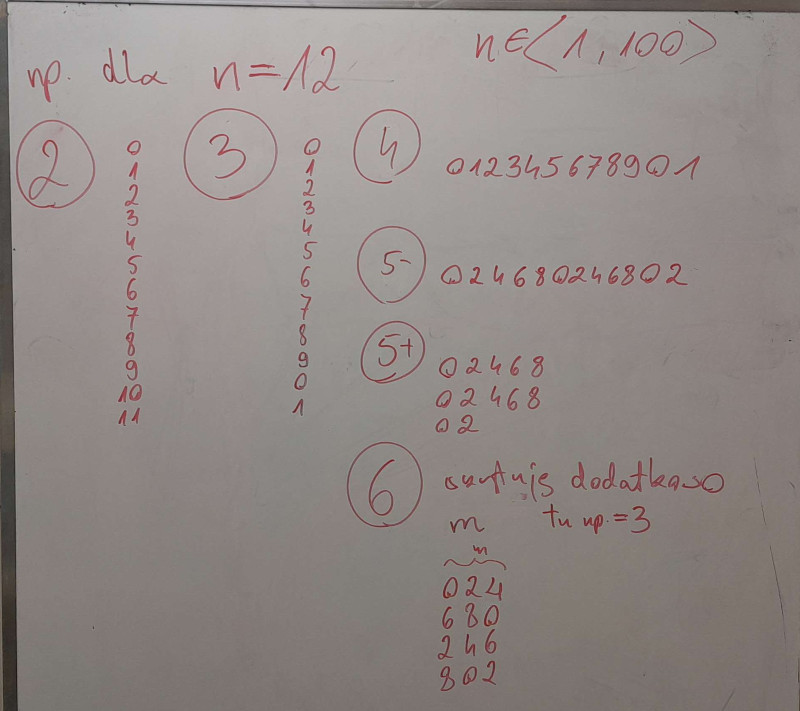 np. dla n=12 n∈<1,100>
2
0
1
2
3
4
5
6
7
8
9
10
11
3
0
1
2
3
4
5
6
7
8
9
0
1
4 012345678901
5- 024680246802
5+ 02468
02468
02
6 dodatkowo
m tu np.=3
m
024
680
246
802